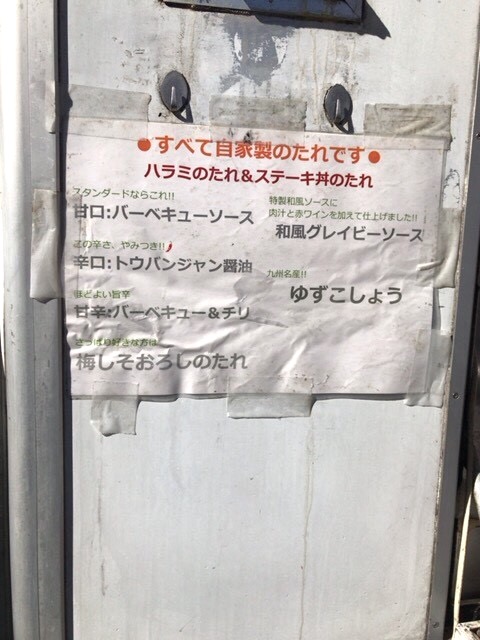 ●すべて自家製のたれです●
ハラミのたれ&ステーキ丼のたれ
スタンダードならこれ!!
甘口:バーベキューソース
この辛さ、やみつき!!
辛口:トウバンジャン醤油
ほどよい旨辛
甘辛:バーベキュー&チリ
さっぱり好きな方は
梅しそおろしのたれ
特製和風ソースに
肉汁と赤ワインを加えて仕上げました!!
和風グレイビーソース
九州名産!!
ゆずこしょう